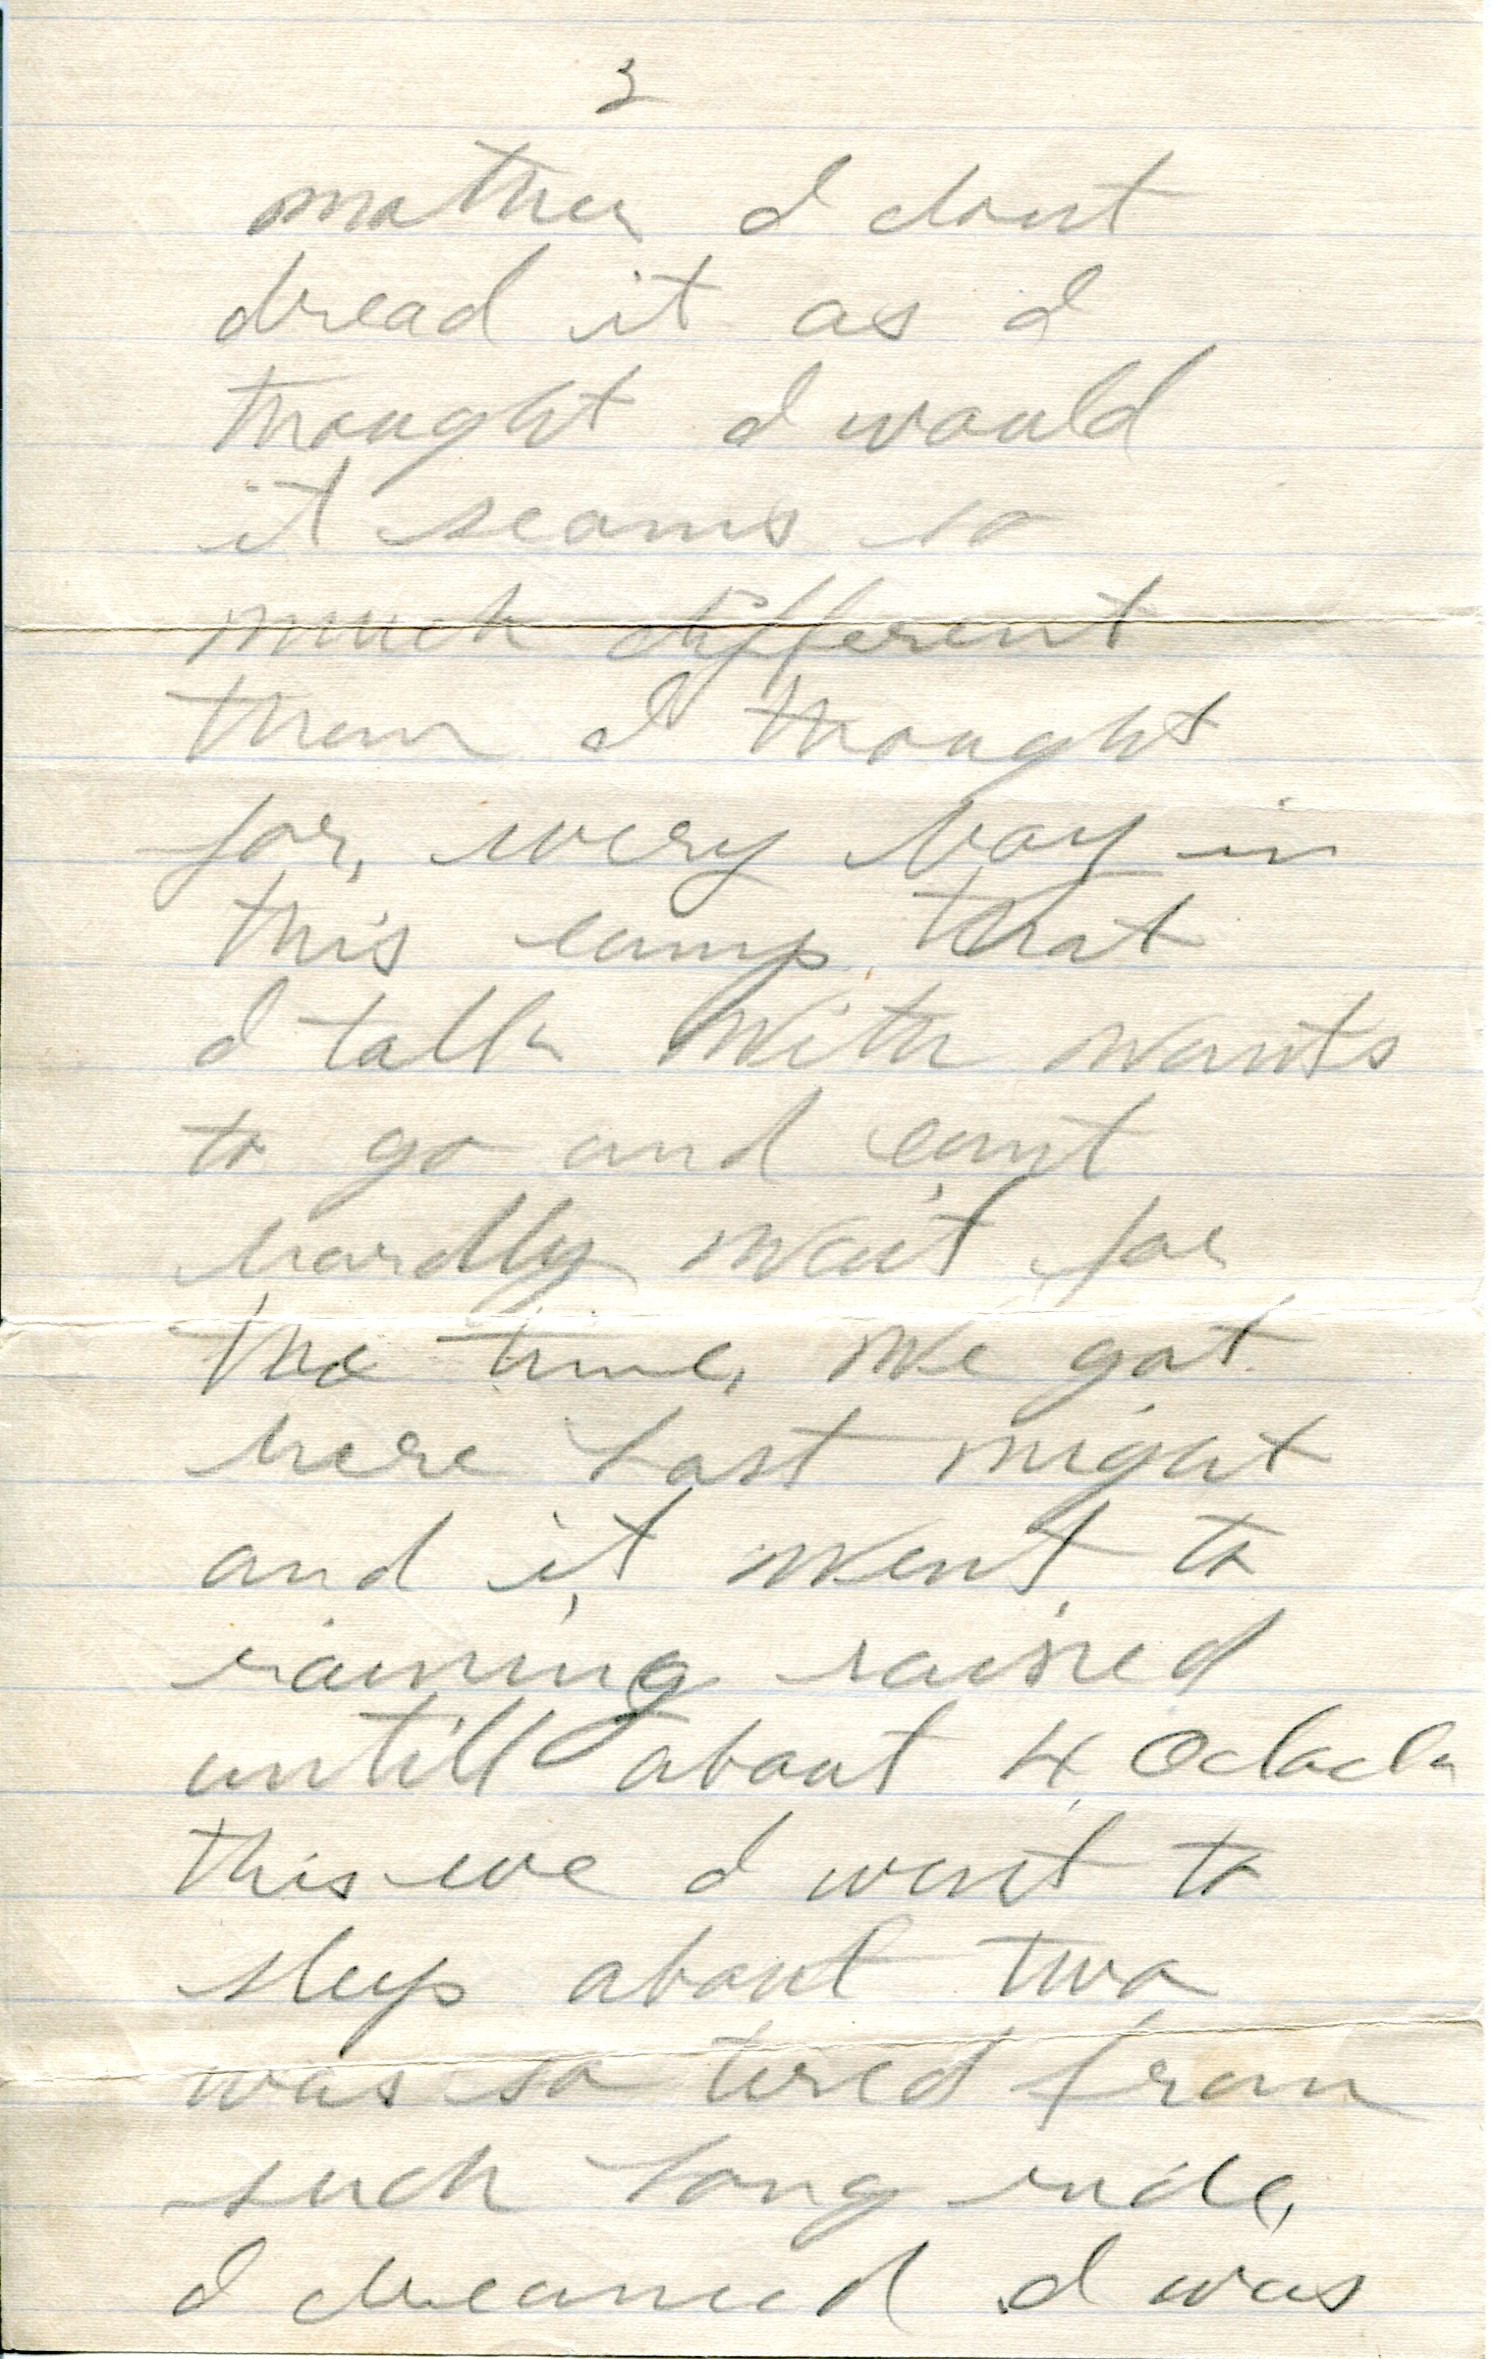 3
mother I dont
dread it as I
thought I would
it seams so
much different
then I thought
for, every boy in
this camp that
I talk with wants
to go and cant
hardly wait for
the time, we got
here last night
and it went to
raining rained
untill about 4 Oclock
this eve I went to
sleep about two
was so tired from
such long ride,
I dreamed I was